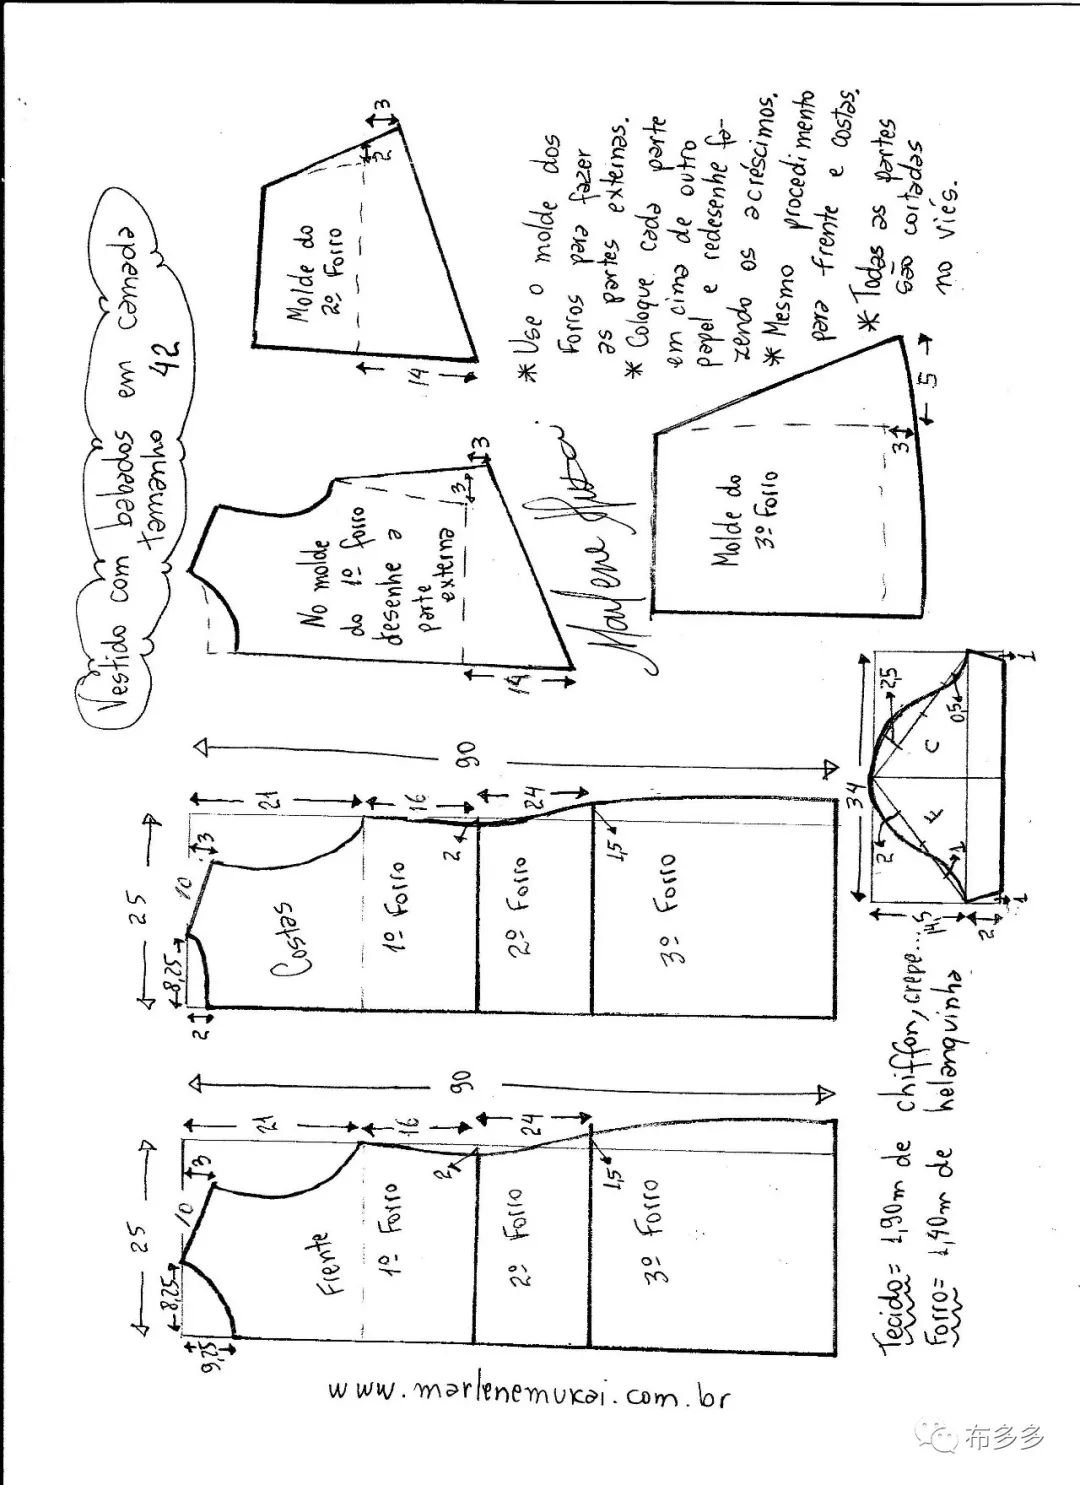 Vestido com babados em camada
tamanho 42
25
8,25
10
3
9,25
21
16
24
90
2
1,5
Frente
1º Forro
2º Forro
3º Forro
25
8,25
10
3
2
21
16
24
90
2
1,5
Costas
1º Forro
2º Forro
3º Forro
No molde
do 1º forro
desenhe a
parte
externa
14
3
3
Molde do
2º Forro
14
2
3
* Use o molde dos
Forros para fazer
as partes externas.
* Coloque cada parte
em cima de outro
papel e redesenhe fa-
zendo os acréscimos.
* Mesmo procedimento
para frente e costas.
* Todas as partes
são cortadas
no viés.
Marlene Mukai
Molde do
3º Forro
3
5
34
14,5
2
1
2
1
F
C
2,5
0,5
1
Tecido= 1,90m de chiffon, crepe...
Forro= 1,40m de helanquinha
www.marlenemukai.com.br
布多多